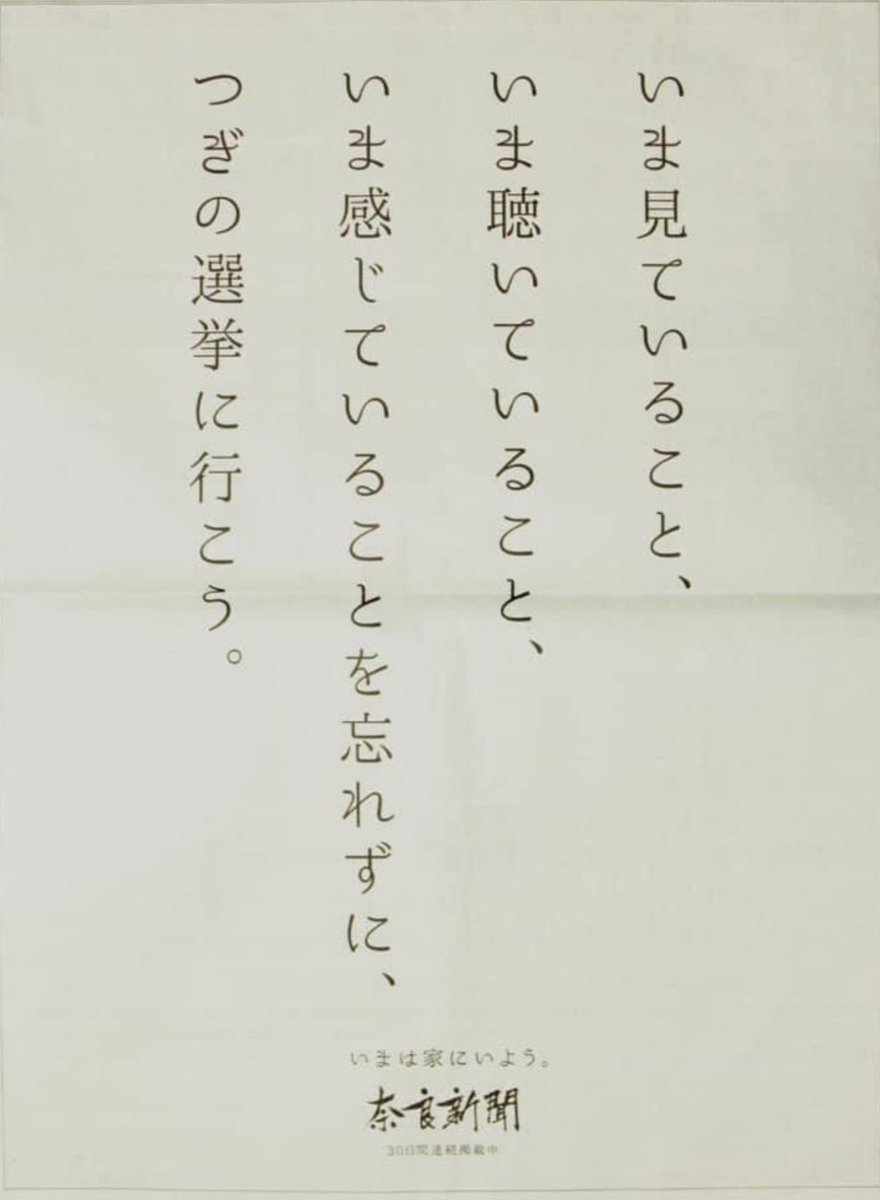 いま見ていること、
いま聴いていること、
いま感じていることを忘れずに、
つぎの選挙に行こう。
いまは家にいよう。
奈良新聞
30日間連続掲載中